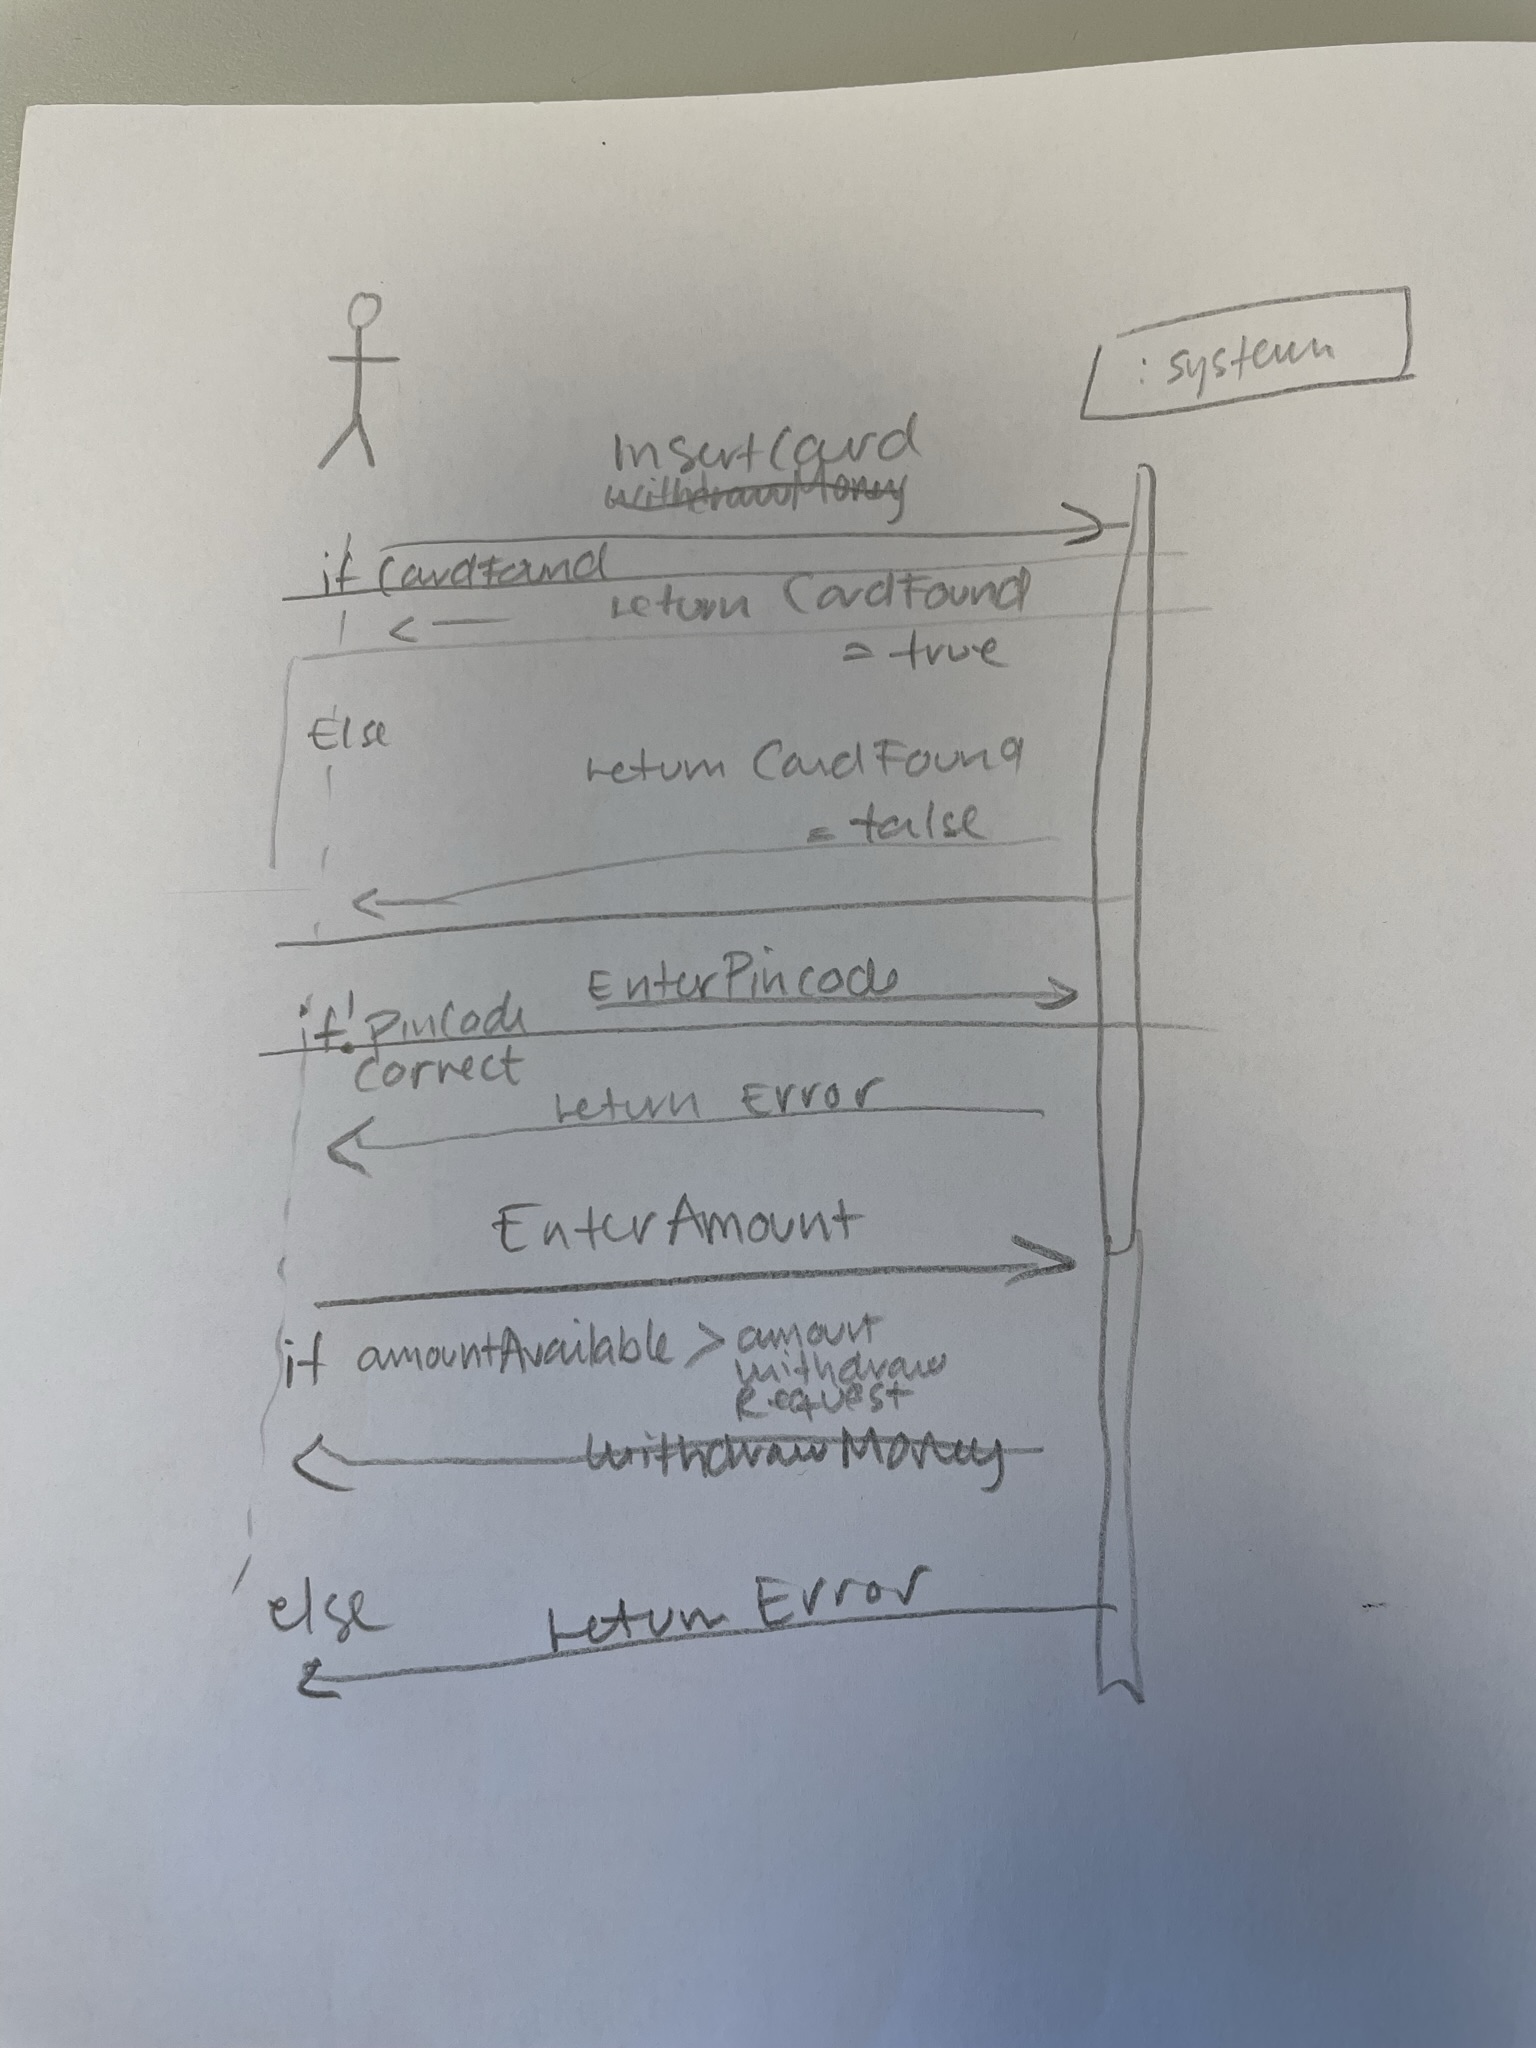 : system
InsertCard
withdrawMoney
if CardFound
return CardFound
= true
Else
return CardFound
= false
EnterPincode
if! PinCode
correct
return Error
EnterAmount
if amountAvailable > amount
withdraw
Request
withdrawMoney
else return Error